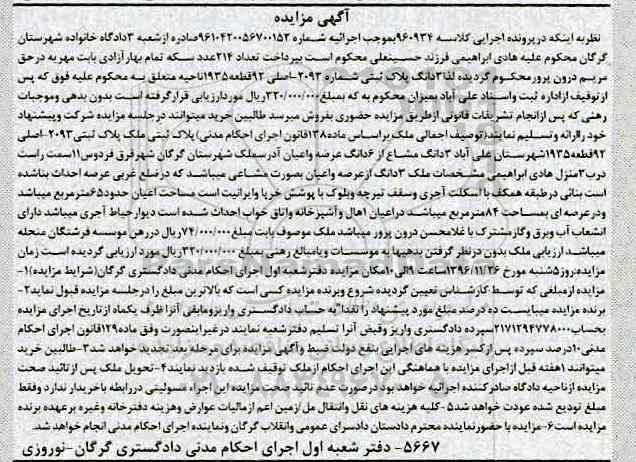 آگهی مزایده
نظر به اینکه در پرونده اجرایی کلاسه ۹۶۰۹۳۴ بموجب اجرائیه شماره ۹۶۱۰۴۲۰۰۵۶۷۰۰۱۵۳ صادره از شعبه ۳ دادگاه خانواده شهرستان
گرگان محکوم علیه هادی ابراهیمی فرزند حسینعلی محکوم است بپرداخت تعداد ۲۱۴ عدد سکه تمام بهار آزادی بابت مهریه در حق
مریم درون پرور محکوم گردیده لذا ۳ دانگ پلاک ثبتی شماره ۲۰۹۳- اصلی ۹۲ قطعه ۱۹۳۵ ناحیه متعلق به محکوم علیه فوق که پس
از توقیف از اداره ثبت و اسناد علی آباد بمیزان محکوم به که بمبلغ ۳۲۰/۰۰۰/۰۰۰ ریال مورد ارزیابی قرار گرفته است بدون بدهی و موجبات
رهنی که پس از انجام تشریفات قانونی از طریق مزایده حضوری بفروش میرسد طالبین خرید میتوانند در جلسه مزایده شرکت و پیشنهاد
خود را ارائه و تسلیم نمایند (توصیف اجمالی ملک بر اساس ماده ۱۳۸ قانون اجرای احکام مدنی) پلاک ثبتی ملک پلاک ثبتی ۲۰۹۳- اصلی
۹۲ قطعه ۱۹۳۵ شهرستان علی آباد ۳ دانگ مشاع از ۶ دانگ عرصه و اعیان آدرس ملک شهرستان گرگان شهر قرق فردوس ۱۱ سمت راست
درب ۳ منزل هادی ابراهیمی مشخصات ملک ۳ دانگ از عرصه و اعیان بصورت مشاعی میباشد که در ضلع غربی عرصه احداث بنا شده
است بنائی در طبقه همکف با اسکلت آجری و سقف تیرچه و بلوک با پوشش خرپا و ایرانیت است مساحت اعیان حدود ۶۵ متر مربع میباشد
و در عرصه ای بمساحت ۸۴ متر مربع میباشد در اعیان ۱ هال و آشپزخانه و اتاق خواب احداث شده است دیوار حیاط آجری میباشد دارای
انشعاب آب و برق و گاز مشترک با غلامحسن درون پرور میباشد ملک موصوف بابت مبلغ ۷۴/۰۰۰/۰۰۰ ریال در رهن موسسه فرشتگان منحله
میباشد ارزیابی ملک بدون در نظر گرفتن بدهیها به موسسات و یا مبالغ رهنی بمبلغ ۳۲۰/۰۰۰/۰۰۰ ریال مورد ارزیابی گردیده است زمان
مزایده روز ۵ شنبه مورخ ۱۳۹۶/۱۱/۲۶ ساعت ۹ الی ۱۰ مکان مزایده دفتر شعبه اول اجرای احکام مدنی دادگستری گرگان (شرایط مزایده) ۱-
مزایده از مبلغی که توسط کارشناس تعیین گردیده شروع و برنده مزایده کسی است که بالاترین مبلغ را در جلسه مزایده قبول نماید ۲-
برنده مزایده میبایست ده درصد مبلغ مورد پیشنهاد را نقدا" به حساب دادگستری واریز و مابقی آنرا ظرف یکماه از تاریخ اجرای مزایده
بحساب ۲۱۷۱۲۹۴۷۷۸۰۰۰ سپرده دادگستری واریز و قبض آنرا تسلیم دفتر شعبه نمایند در غیر اینصورت وفق ماده ۱۲۹ قانون اجرای احکام
مدنی ۱۰ درصد سپرده پس از کسر هزینه های اجرایی بنفع دولت ضبط و آگهی مزایده برای مرحله بعد تجدید خواهد شد ۳- طالبین خرید
میتوانند ۱ هفته قبل از اجرای مزایده با هماهنگی این اجرای احکام از ملک توقیف شده بازدید نمایند ۴- تحویل ملک پس از تائید صحت
مزایده از ناحیه دادگاه صادر کننده اجرائیه خواهد بود در صورت عدم تائید صحت مزایده این اجراء مسئولیتی در رابطه با خریدار ندارد و فقط
مبلغ تودیع شده عودت خواهد شد ۵- کلیه هزینه های نقل و انتقال مل ز مین اعم از مالیات عوارض و هزینه دفترخانه و غیره بر عهده برنده
مزایده است ۶- مزایده با حضور نماینده محترم دادستان دادسرای عمومی و انقلاب گرگان و نماینده اجرای احکام مدنی انجام خواهد شد.
۵۶۶۷- دفتر شعبه اول اجرای احکام مدنی دادگستری گرگان - نوروزی